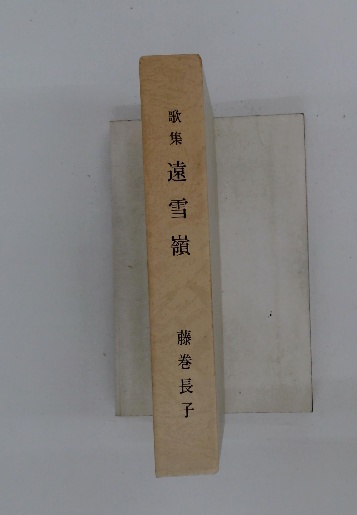 歌集 遠雪嶺 藤巻長子